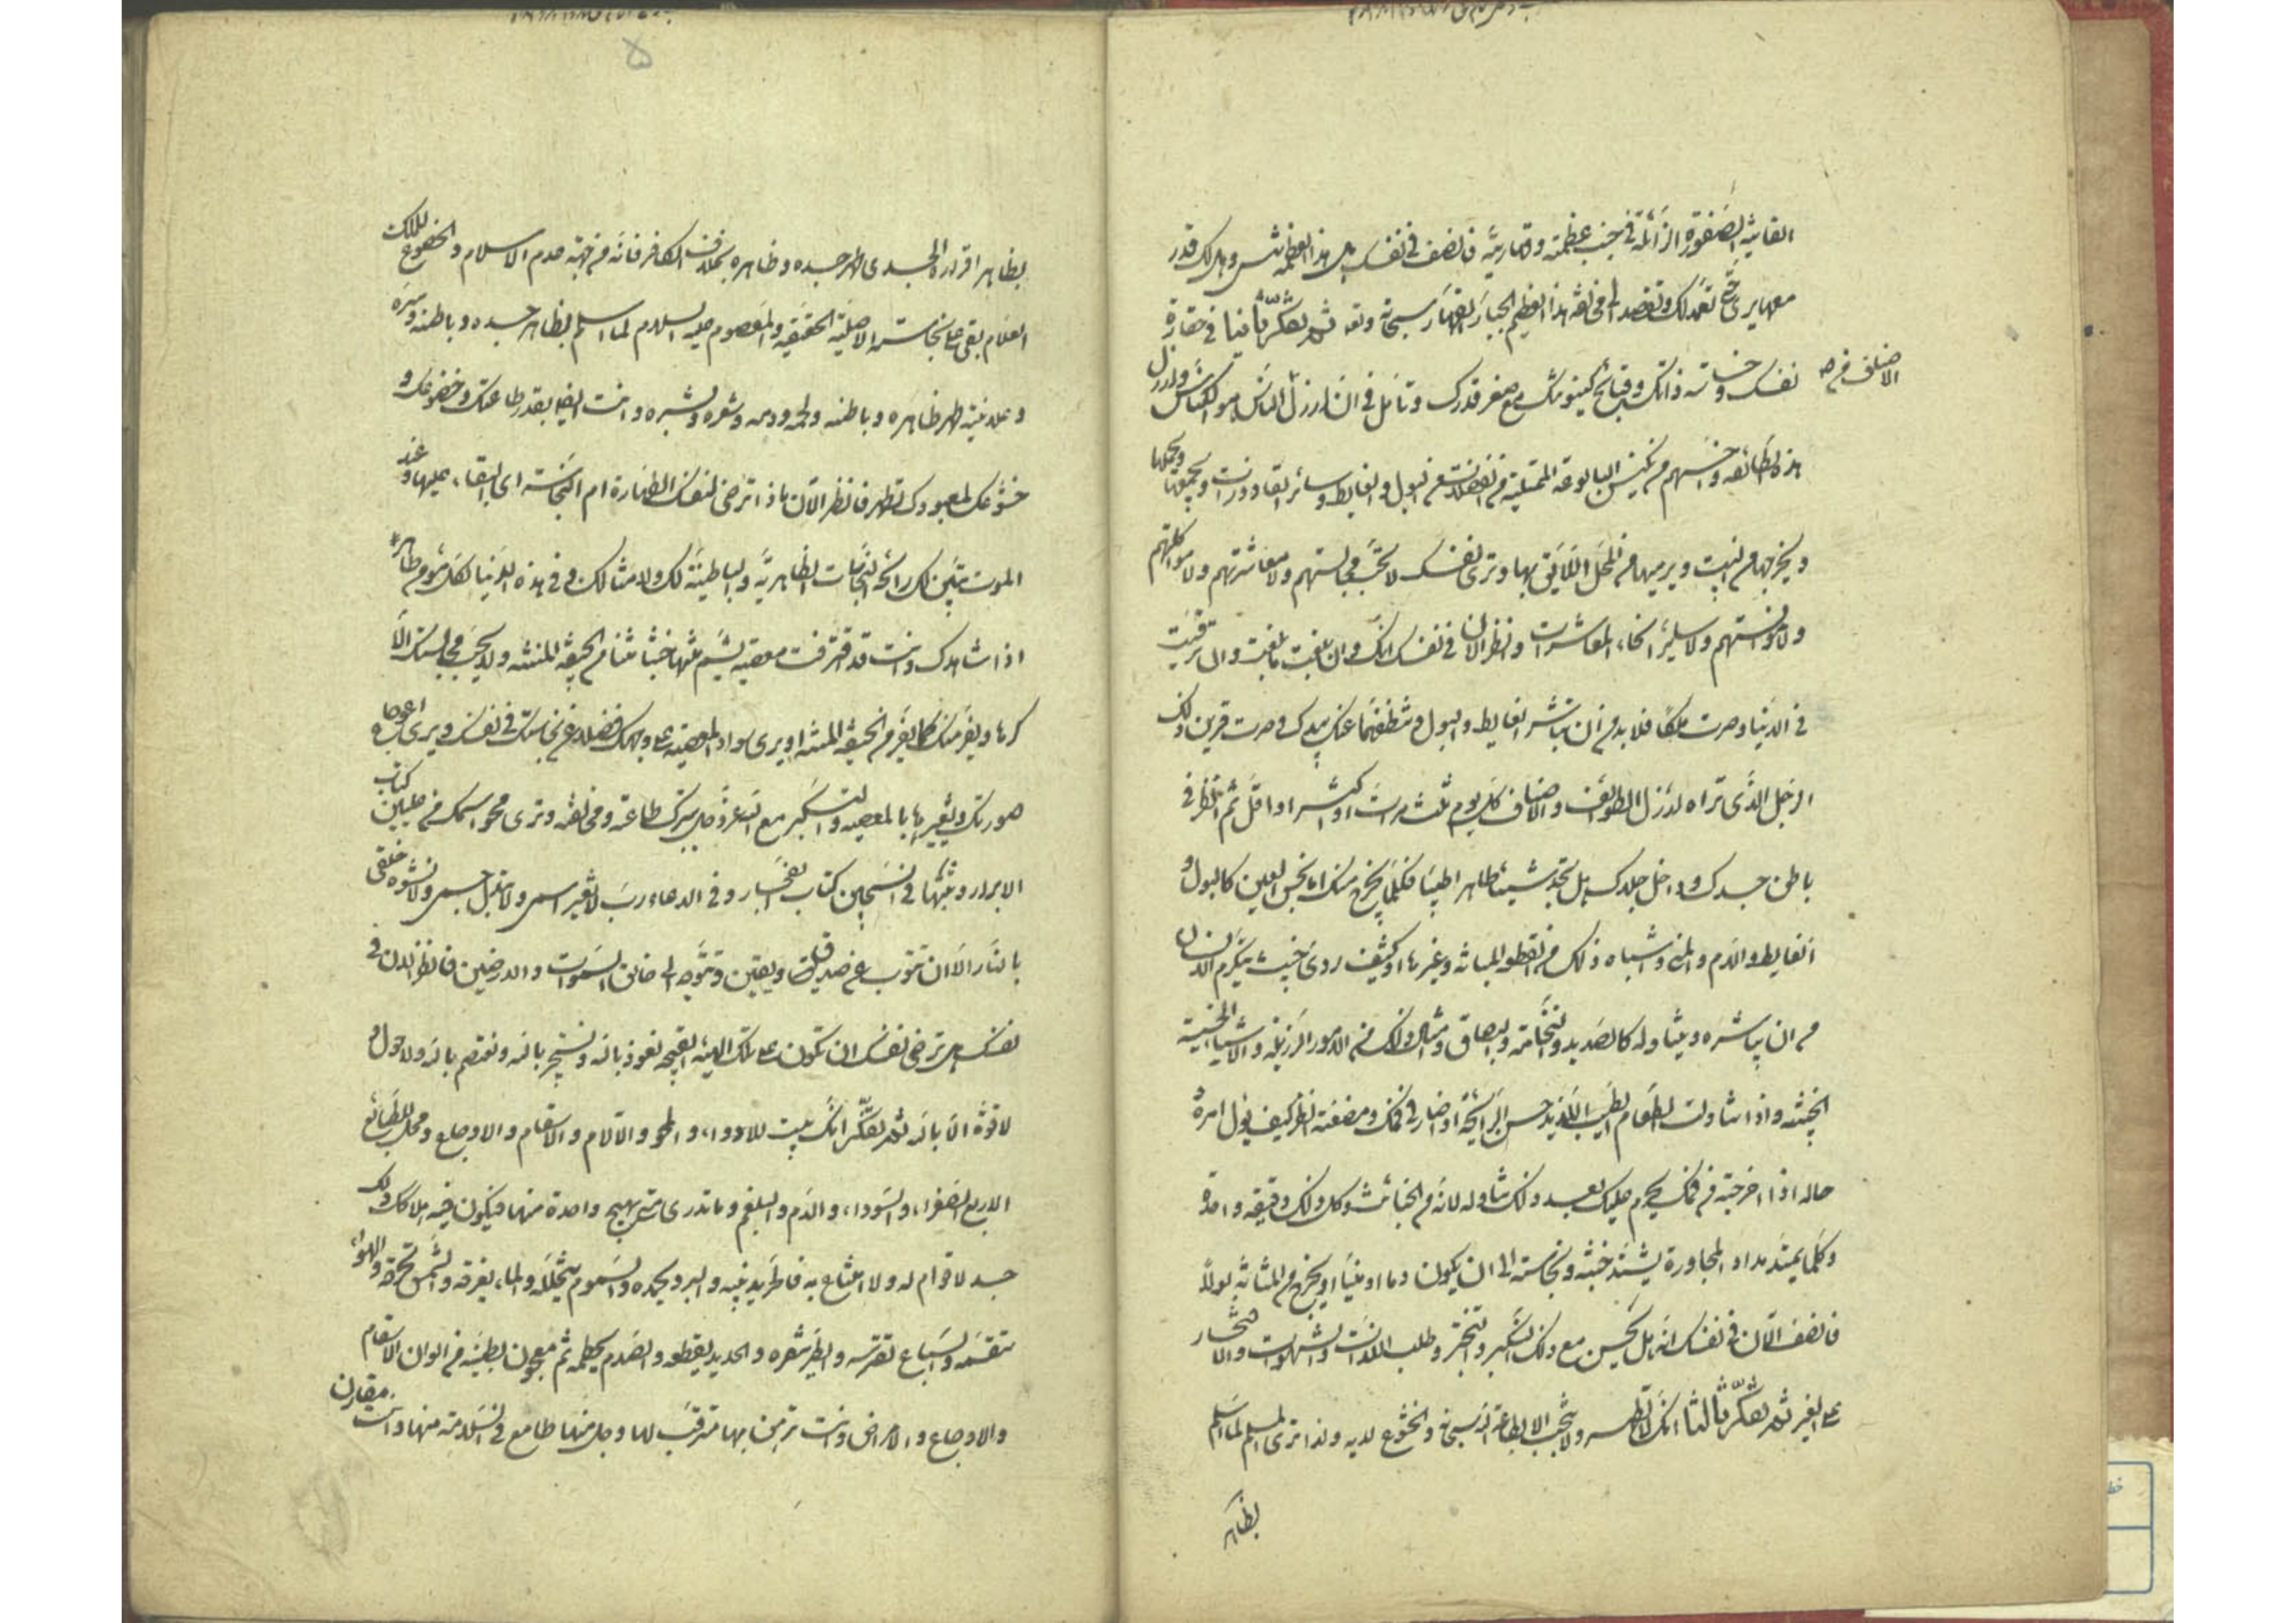 الفانية الصغورة الزائلة في جنب عظمته وقهاريته فانصف في نفسك هل هذا العظمة شيء وهل لك قدر
معها يرى حتى تعمد لك وتقصد الى مخالفة هذا العظيم الجبار القهار سبحانه وتعه ثم تفكر ثانيا في حقارة
نفسك وخساسة ذاتك وقبائح كينونتك مع صغر قدرك وتأمل في ان ارذل الناس هو الكناس وارذل
الاصناف من
هذه الطائفة واخسهم من يكنس البالوعة الممتلية من فضلات من البول والغايط وساير القاذورات ويجمعها ويحملها
ويخرجها من البيت ويرميها في المحل اللايق بها وترى نفسك لا تحب مجالستهم ولا معاشرتهم ولا مواكلتهم
ولا مؤانستهم ولا ساير انحاء المعاشرات وانظر الان في نفسك انك وان بلغت ما بلغت والى ما ترقيت
في الدنيا وصرت ملكا فلا بد من ان تباشر الغايط والبول وتنظفهما عنك بيدك وصرت قرين ذلك
الرجل الذي تراه ارذل الطوائف والاصناف كل يوم ثلث مرات او اكثر او اقل ثم انظر في
باطن جسدك وداخل جلدك هل تجد شيئا طاهرا طيبا فكلما يخرج منك اما نجس العين كالبول و
الغايط والدم والمني واشباه ذلك من القطور المباشه وغيرها او كثيف ردي خبيث يتكرم الانسان
من ان يباشره ويتناوله كالصديد والنخامة والبصاق وامثال ذلك من الامور الرذيلة والاشياء الخبيثة
الخبيثه واذا تناولت الطعام الطيب اللذيذ حسن الرايحة اذا صار في فمك ومضغته انظر كيف يؤل امره
حاله اذا اخرجته من فمك يحرم عليك بعد ذلك تناوله لانه من الخبائث وكل ذلك دقيقه واحدة
وكلما يمتد مداد المجاورة يشتد خبثه ونجاسته الى ان يكون دما او منيا او يخرج من المثانة بولا
فانصف الآن في نفسك انه هل يحسن مع ذلك التكبر والتبختر وطلب اللذات والشهوات والافتخار
على الغير ثم تفكر ثالثا انك لا تطهر ولا تحب الا بطاعة الله سبحانه والخشوع لديه ولذا ترى المسلم لما اسلم
بظاهر
بظاهر اقراره الجسدي طهر جسده وظاهره بخلاف الكافر فانه من جهة عدم الاسلام والخضوع للملك
العلام بقى على نجاسته الاصلية الحقيقيه والمعصوم عليه السلام لما اسلم بظاهر جسده وباطنه وسره
وعلانيته طهر ظاهره وباطنه ولحمه ودمه وشعره وبشره وانت ايضا بقدر طاعتك وخضوعك و
خشوعك لمعبودك تطهر فانظر الآن ماذا ترضى لنفسك الطهارة ام النجاسة اي البقاء عليها وعند
الموت يتبين لك رائحة النجاسات الظاهرية والباطنية لك ولامثالك وفي هذه الدنيا لكل مؤمن طاهر
اذا شاهدك وانت قد اقترفت معصية يشم منها خبثا نتنا من الجيفة المنتنه ولا يحب مجالستك الا
كرها ويفر منك كما يفر من الجيفه المنتنه او يرى سواد المعصية على وجهك فضلا عن نجاستك في نفسك ويرى اعوجاج
صورتك وتغييرها بالمعصيه والتكبر مع الله عز وجل بترك طاعته ومخالفته وترى محو اسمك من عليين كتاب
الابرار وثبتها في السجين كتاب الفجار وفي الدعاء رب لا تغير اسمي ولا تبدل جسمي ولا تشوه خلقي
بالنار الا ان تتوب عن صدق قلب ويقين وتتوجه الى خالق السموات والارضين فانظر الان في
نفسك هل ترضى نفسك ان تكون على تلك الهيئة القبيحه نعوذ بالله ونستجير بالله ونعتصم بالله ولا حول و
لا قوة الا بالله ثم تفكر انك بيت للادواء والمحن والآلام والاسقام والاوجاع ومحل للطبائع
الاربع الصفراء والسوداء والدم والبلغم وما تدري متى يهيج واحدة منها فيكون فيه هلاكك ولك
جسد لا قوام له ولا امتناع به فالحر يذيبه والبرد يجمده والسموم يتخلله والماء يغرقه والشمس تحرقه والهواء
يسقمه والسباع تفترسه والطير تنقره والحديد يقطعه والصدم يحطمه ثم معجون بطينه من الوان الاسقام
والاوجاع والامراض وانت مرتهن بها مترقب لها وجل منها طامع في السلامة منها وانت مقارن